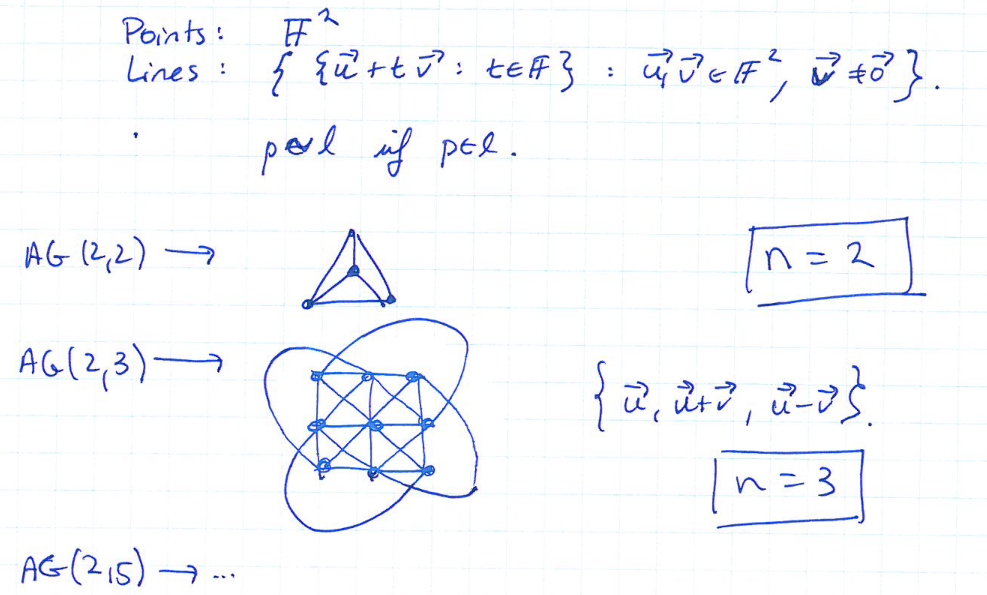 Points: 𝔽²
Lines: { {u⃗ + t v⃗ : t ∈ 𝔽} : u⃗, v⃗ ∈ 𝔽², v⃗ ≠ 0⃗ }.
p ~ l if p ∈ l.
AG(2,2) →
n = 2
AG(2,3) →
{ u⃗, u⃗+v⃗, u⃗-v⃗ }.
n = 3
AG(2,5) → ...